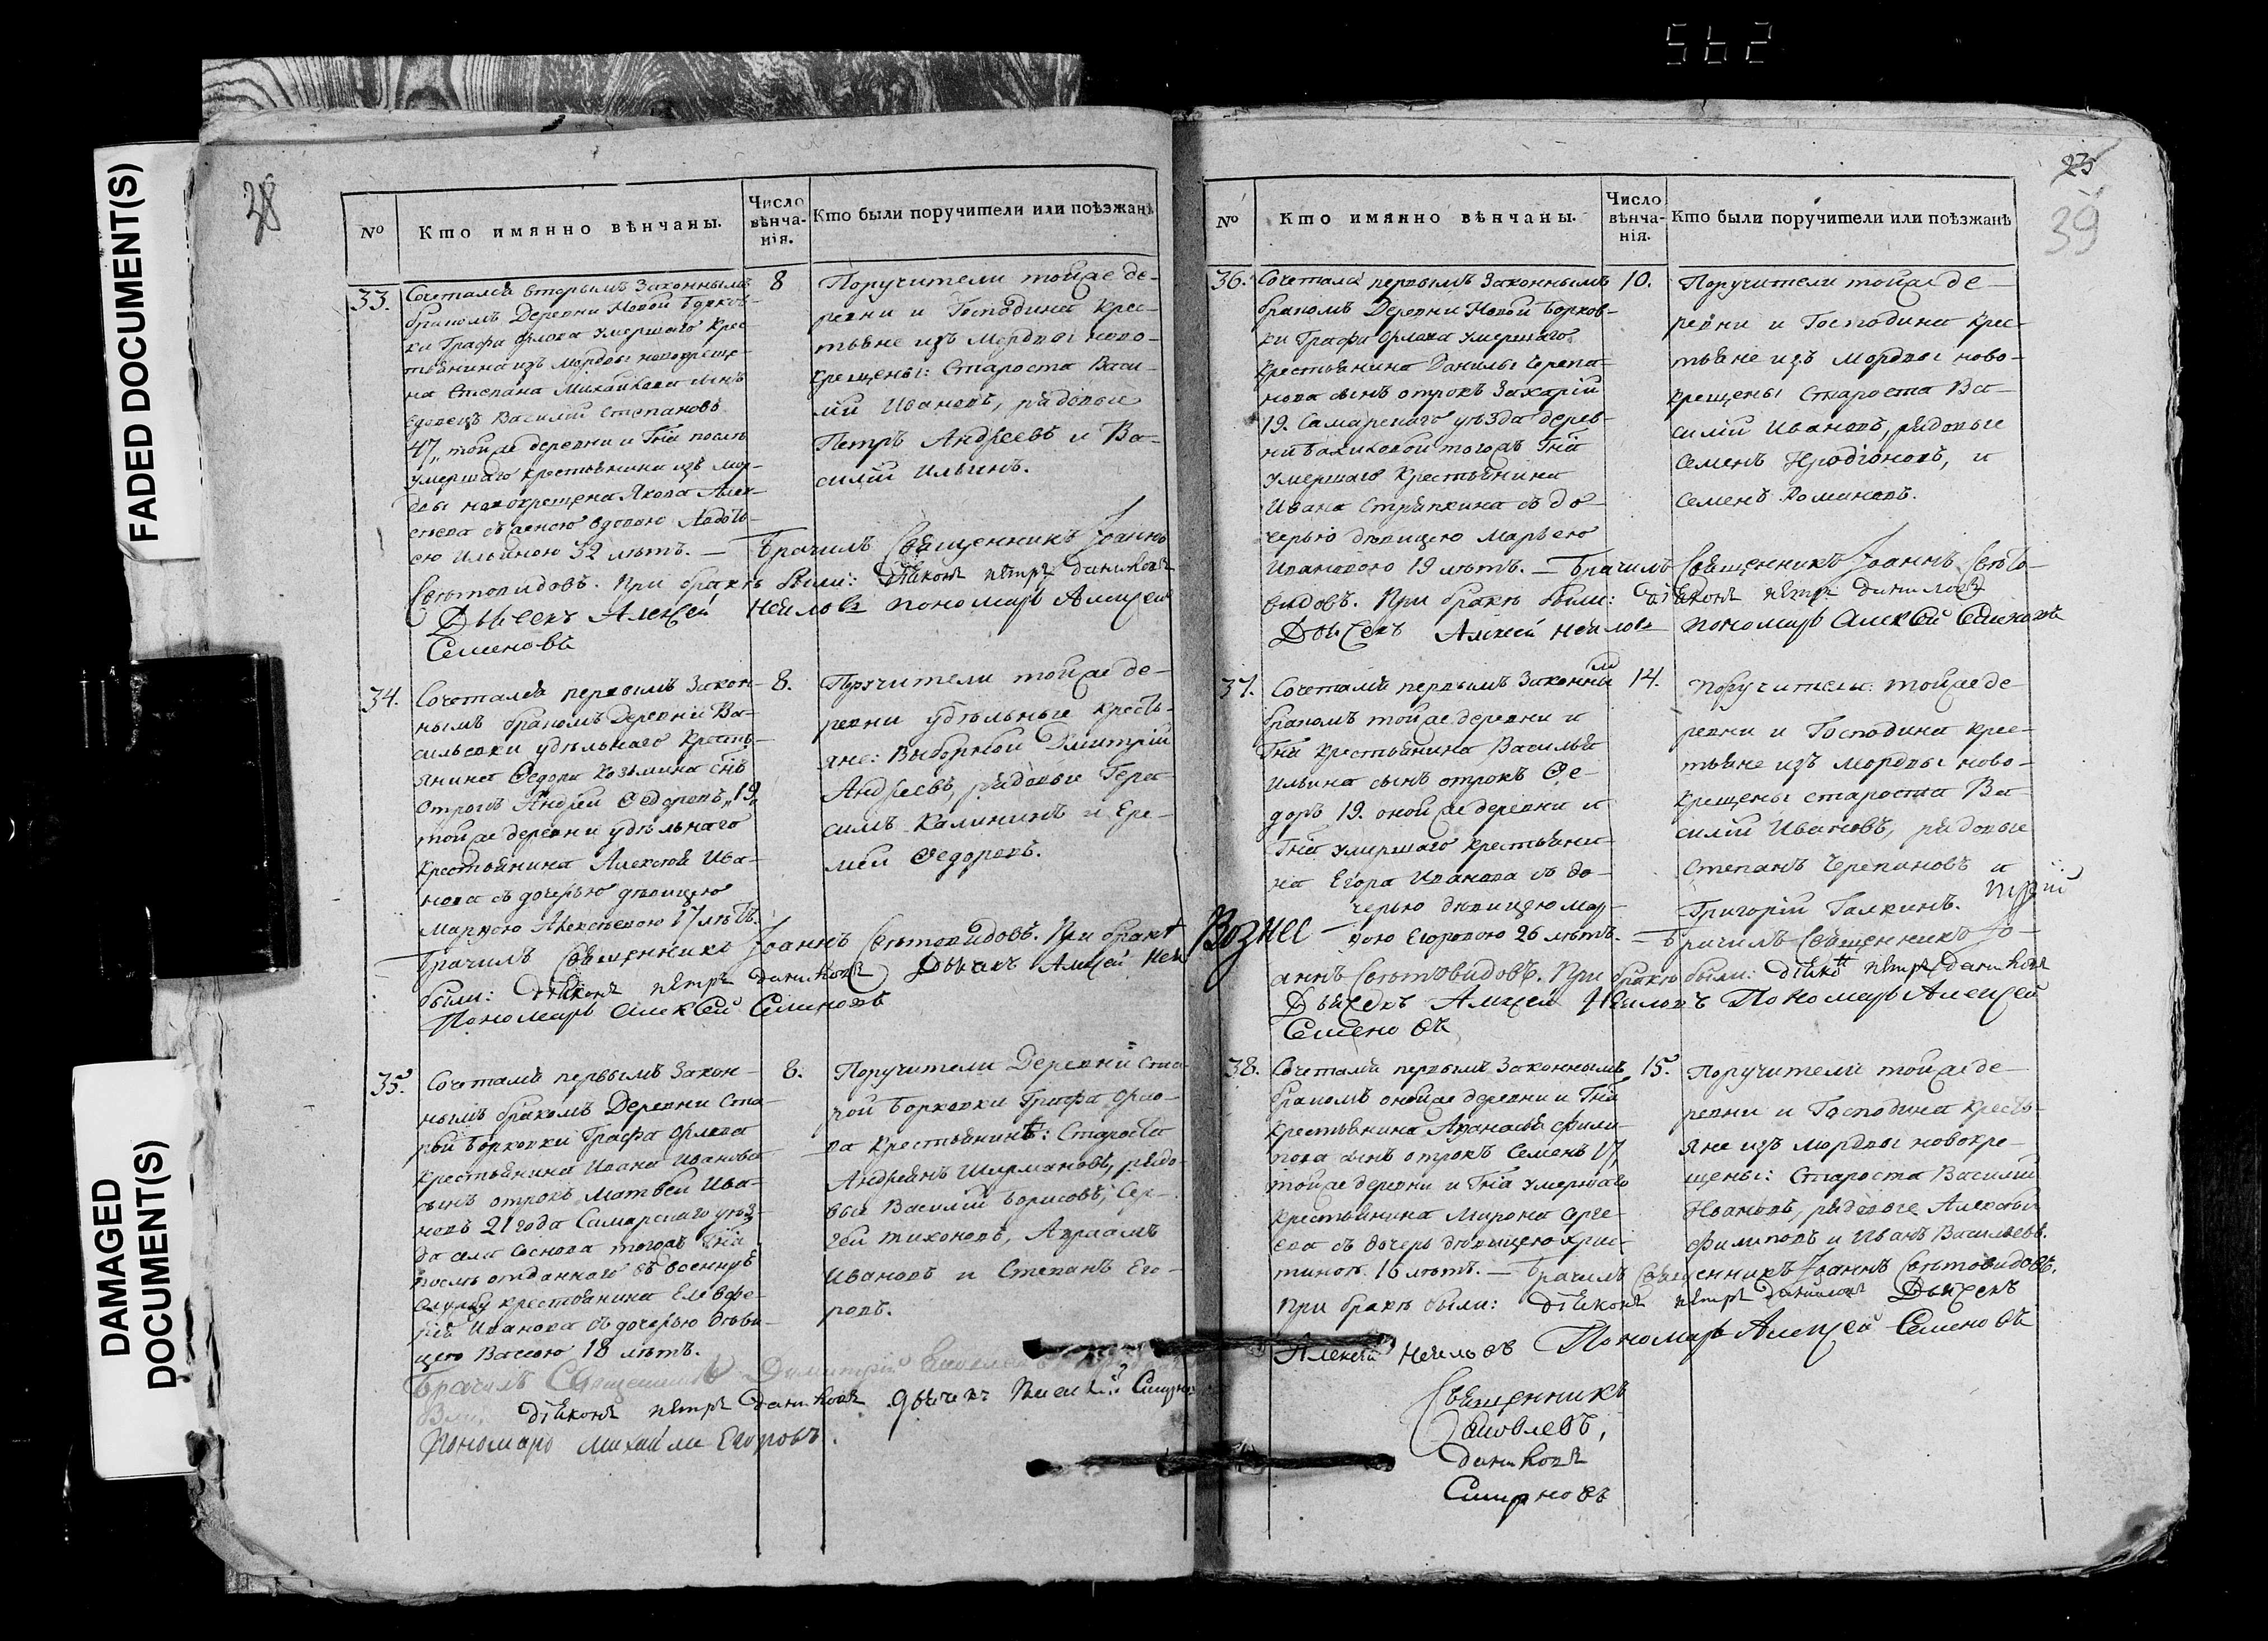 562
FADED DOCUMENT(S)
DAMAGED
DOCUMENT(S)
38
№
Кто имянно вѣнчаны.
Число
вѣнча-
нія.
Кто были поручители или поѣзжанѣ
33.
Сочетался вторымъ Законнымъ
бракомъ Деревни Новой Борков-
ки Графа Орлова умершаго крес
тьянина изъ Мордвы новокреще-
на Степана Михайлова сынъ
вдовецъ Василій Степановъ
47, тойже деревни и Гна послѣ
умершаго крестьянина изъ мор-
двы новокрещена Якова Алек-
сѣева съ женою вдовою Авдоть-
ею Ильиною 32 лѣтъ. — Брачилъ Священникъ Іоаннъ
Свѣтовидовъ. При бракѣ были: діаконъ петръ даниловъ
Дьячекъ Алексей Неиловъ пономарь Алексей
Семеновъ
8
Поручители тойже де-
ревни и Господина крес-
тьяне изъ Мордвы ново-
крещены: Староста Васи-
лій Ивановъ, рядовые
Петръ Андреевъ и Ва-
силій Ильинъ.
34.
Сочетался первымъ Закон-
нымъ бракомъ Деревни Ва-
сильевки удѣльнаго кресть-
янина Ѳедора Козьмина снъ
отрокъ Андрей Ѳедоровъ 19,
тойже деревни удѣльнаго
крестьянина Алексѣя Ива-
нова съ дочерью дѣвицею
Марѳою Алексѣевою 17 лѣтъ.
Брачилъ Священникъ Іоаннъ Свѣтовидовъ. При бракѣ
были: діаконъ петръ даниловъ Дьячекъ Алексей Неи
Пономарь Алексей Семеновъ
8.
Поручители тойже де-
ревни удѣльные кресть-
яне: Выборной Димитрій
Андреевъ, рядовые Гера
симъ Калининъ и Ере-
мей Ѳедоровъ.
35.
Сочетался первымъ Закон-
нымъ бракомъ Деревни Ста-
рой Борковки Графа Орлова
крестьянина Ивана Иванова
сынъ отрокъ Матвей Ива-
новъ 21 года Самарскаго уѣз-
да села Соснова тогожъ Гна
послѣ отданнаго въ военную
службу крестьянина Елевфе-
рія Иванова съ дочерью дѣви-
цею Вассою 18 лѣтъ.
Брачилъ Священникъ Димитрій Яковлевъ
діаконъ петръ даниловъ дьячекъ Смирно
Пономарь Михайла Егоровъ.
8.
Поручители Деревни Ста
рой Борковки Графа Орло-
ва крестьянинѣ: Староста
Андреянъ Шурмановъ, рядо-
вые Василій Борисовъ, Сер-
гей Тихоновъ, Авраамъ
Ивановъ и Степанъ Его-
ровъ.
23
39
№
Кто имянно вѣнчаны.
Число
вѣнча-
нія.
Кто были поручители или поѣзжанѣ
36.
Сочетался первымъ Законнымъ
бракомъ Деревни Новой Борков-
ки Графа Орлова умершаго
крестьянина Данилы Черепа-
нова сынъ отрокъ Захарій
19. Самарскаго уѣзда дерев-
ни тогожъ Гна
умершаго крестьянина
Ивана Стряпкина съ до-
черью дѣвицею Марьею
Ивановою 19 лѣтъ. — Брачилъ Священникъ Іоаннъ Свѣто-
видовъ. При бракѣ были: діаконъ петръ даниловъ
Дьячекъ Алексей Неиловъ пономарь Алексей Семеновъ
10.
Поручители тойже де-
ревни и Господина крес-
тьяне изъ мордвы ново-
крещены Староста Ва-
силій Ивановъ, рядовые
Семенъ Иродіоновъ, и
Семенъ Романовъ.
37.
Сочетался первымъ Законны
мъ
бракомъ тойже деревни и
Гна крестьянина Василья
Ильина сынъ отрокъ Ѳе-
доръ 19. онойже деревни и
Гна умершаго крестьяни-
на Егора Иванова съ до-
черью дѣвицею Мар-
ѳою Егоровою 26 лѣтъ. — Брачилъ Священникъ Іо-
аннъ Свѣтовидовъ. При бракѣ были: діаконъ петръ даниловъ
Дьячекъ Алексей Неиловъ Пономарь Алексей
Семеновъ
14.
Поручители: тойже де
ревни и Господина крес-
тьяне изъ мордвы ново-
крещены староста Ва
силій Ивановъ, рядовые
Степанъ Черепановъ и
Григорій Галкинъ.
Вознес
38.
Сочетался первымъ Законнымъ
бракомъ онойже деревни и Гна
крестьянина Аѳанасья Фили-
пова сынъ отрокъ Семенъ 17,
тойже деревни и Гна умершаго
крестьянина Мирона Серге-
ева съ дочерь дѣвицею Хрис-
тиною 16 лѣтъ. — Брачилъ Священникъ Іоаннъ Свѣтовидовъ.
При бракѣ были: діаконъ петръ даниловъ Дьячекъ
Алексѣй Неиловъ Пономарь Алексей Семеновъ
15.
Поручители тойже де-
ревни и Господина кресть-
яне изъ мордвы новокре-
щены: Староста Василій
Ивановъ, рядовые Алексѣй
Филиповъ и Иванъ Васильевъ.
Священникъ
Яковлевъ,
даниловъ
Смирновъ